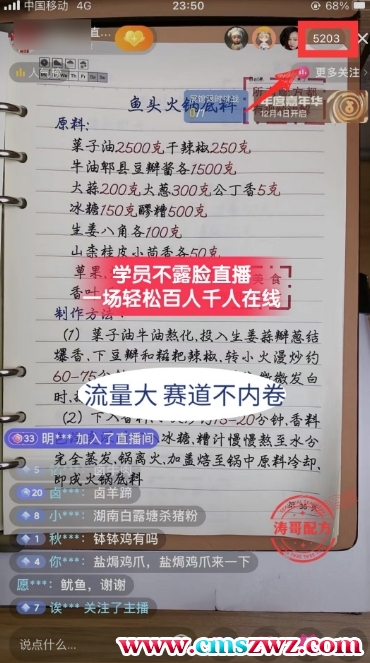 中国移动 4G
23:50
83%
直…
5203
人气榜
更多关注
年度嘉年华
12月4日开启
0/1
鱼头火锅底料
原料:
菜子油2500克干辣椒250克
牛油郫县豆瓣酱各1500克
大蒜200克大葱300克公丁香5克
冰糖150克醪糟500克
生姜八角各100克
山柰桂皮小茴香各50克
草果
香叶
美食
学员不露脸直播
一场轻松百人千人在线
制作方法:
(1) 菜子油牛油熬化,投入生姜蒜瓣葱结
爆香,下豆瓣和糍粑辣椒,转小火漫炒约
60-75分
微微发白
时,
流量大 赛道不内卷
(2) 下入香料
15-20分钟,香料
33 明*** 加入了直播间
冰糖,糟汁慢慢熬至水分
完全蒸发,锅离火,加盖焐至锅中原料冷却,
即成火锅底料
5
20 卤***: 卤羊蹄
8 小***: 湖南白露塘杀猪粉
1 秋***: 钵钵鸡有吗
4 你***: 盐焗鸡爪,盐焗鸡爪来一下
愿***: 鱿鱼,谢谢
7 诶*** 关注了主播
涛哥配方
说点什么...
www.cmszwz.com